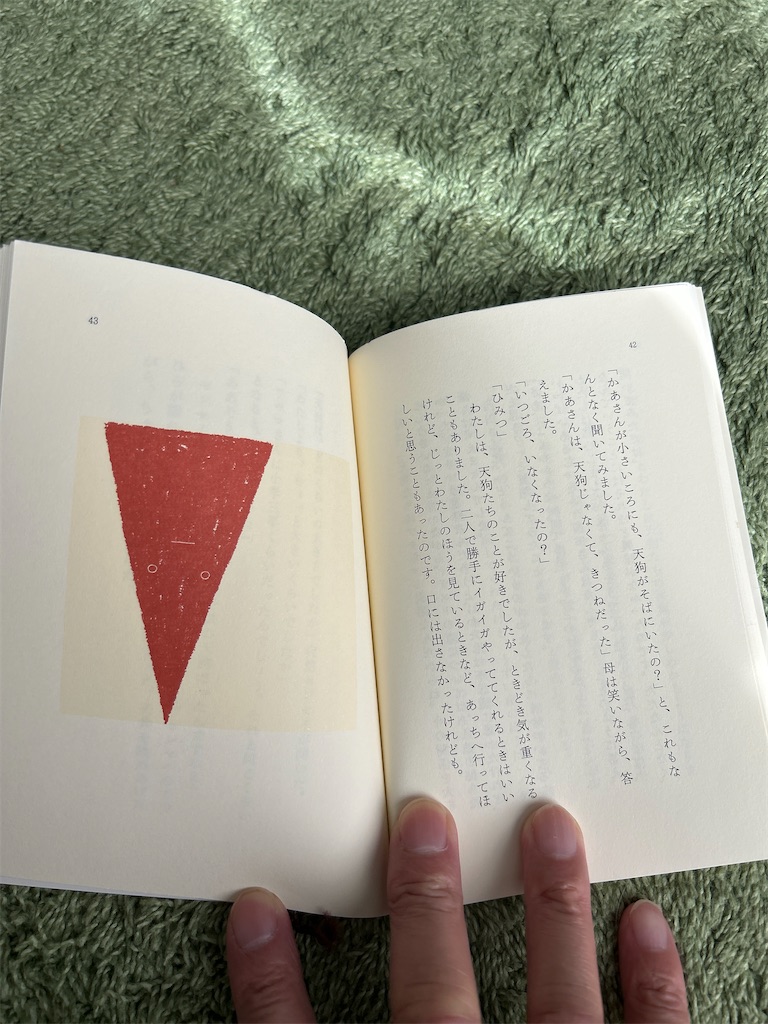 42
「かあさんが小さいころにも、天狗がそばにいたの?」と、これもな
んとなく聞いてみました。
「かあさんは、天狗じゃなくて、きつねだった」母は笑いながら、答
えました。
「いつごろ、いなくなったの?」
「ひみつ」
わたしは、天狗たちのことが好きでしたが、ときどき気が重くなる
こともありました。二人で勝手にイガイガやっててくれるときはいい
けれど、じっとわたしのほうを見ているときなど、あっちへ行ってほ
しいと思うこともあったのです。口には出さなかったけれども。
43